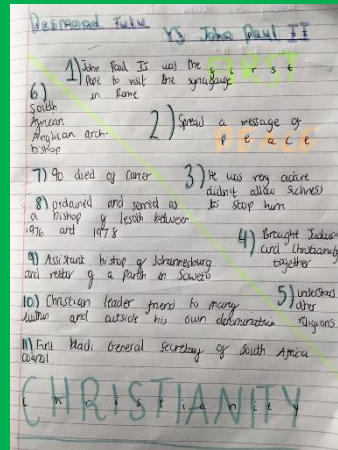 Desmond Tutu
Vs John Paul II
1) John Paul II was the first
Pope to visit the synagauge
in Rome
FIRST
6)
South
African
Anglican arch-
bishop
2) Spread a message of
peace
PEACE
7) 90 died of Cancer
3) He was very active
didn't allow sickness
to stop him
8) ordained and served as
a bishop of lesoth between
1976 and 1978
4) Brought Judaism
and Christianity
together
9) Assistant bishop of Johannesburg
and rector of a parish in Soweto
5) understands
other
religions
10) Christian leader friend to many
within and outside his own denomination
11) First black General Secretary of South Africa
council
CHRISTIANITY
christianity